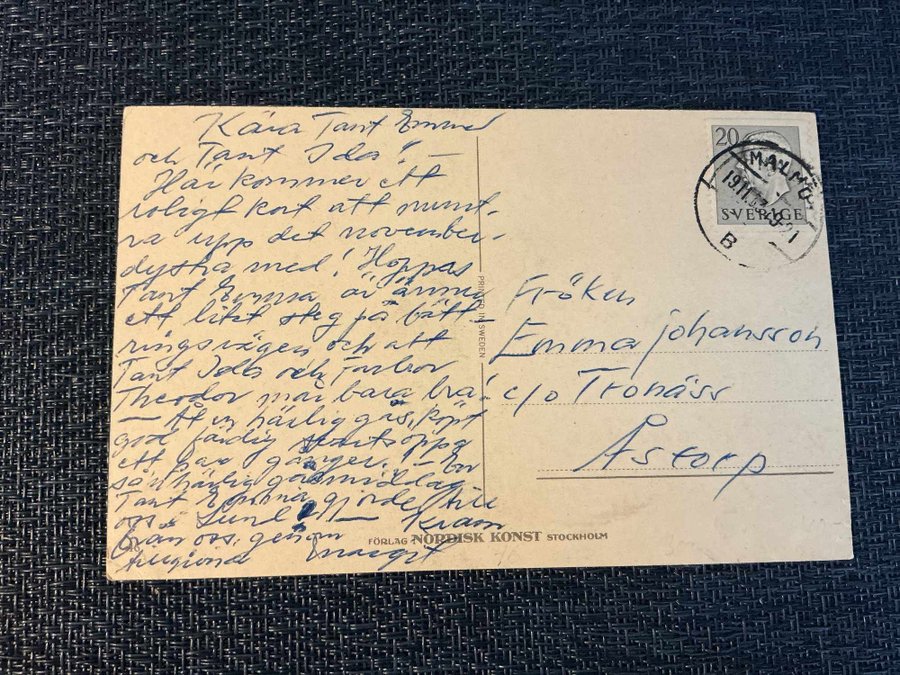 Kära Tant Emma
och Tant Ida!
Här kommer ett
roligt kort att munt-
ra upp det november-
dystra med! Hoppas
Tant Emma är ännu
ett litet steg på bätt-
ringsvägen och att
Tant Ida och Farbror
Theodor mår bara bra!
— Åt en härlig gås, köpt
god färdig svartsoppa
ett par gånger. — En
sån härlig gåsmiddag
Tant Emma gjorde åt
oss i Lund — Kram
från oss, genom
Margit
20
SVERIGE
MALMÖ
19.11
B
PRINTED IN SWEDEN
Fröken
Emma Johansson
c/o Tronäss
Åstorp
FÖRLAG NORDISK KONST STOCKHOLM